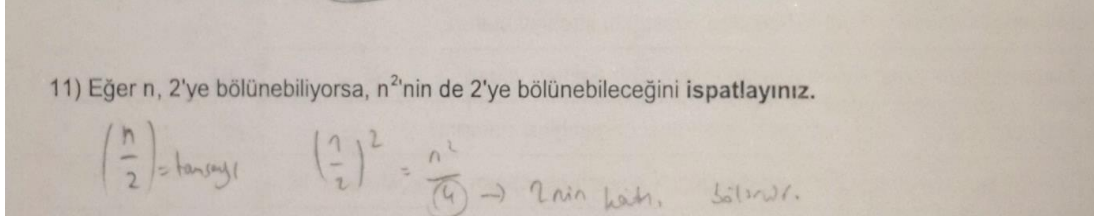 11) Eğer n, 2'ye bölünebiliyorsa, n²'nin de 2'ye bölünebileceğini ispatlayınız.
(n/2) = tamsayı (n/2)² = n²/4 → 2 nin katı, bölünür.